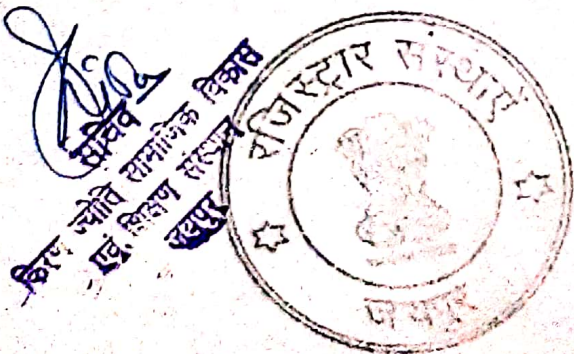 सचिव
किरण ज्योति सामाजिक विकास
एवं शिक्षण संस्थान
जयपुर
रजिस्ट्रार संस्थाऐं
जयपुर